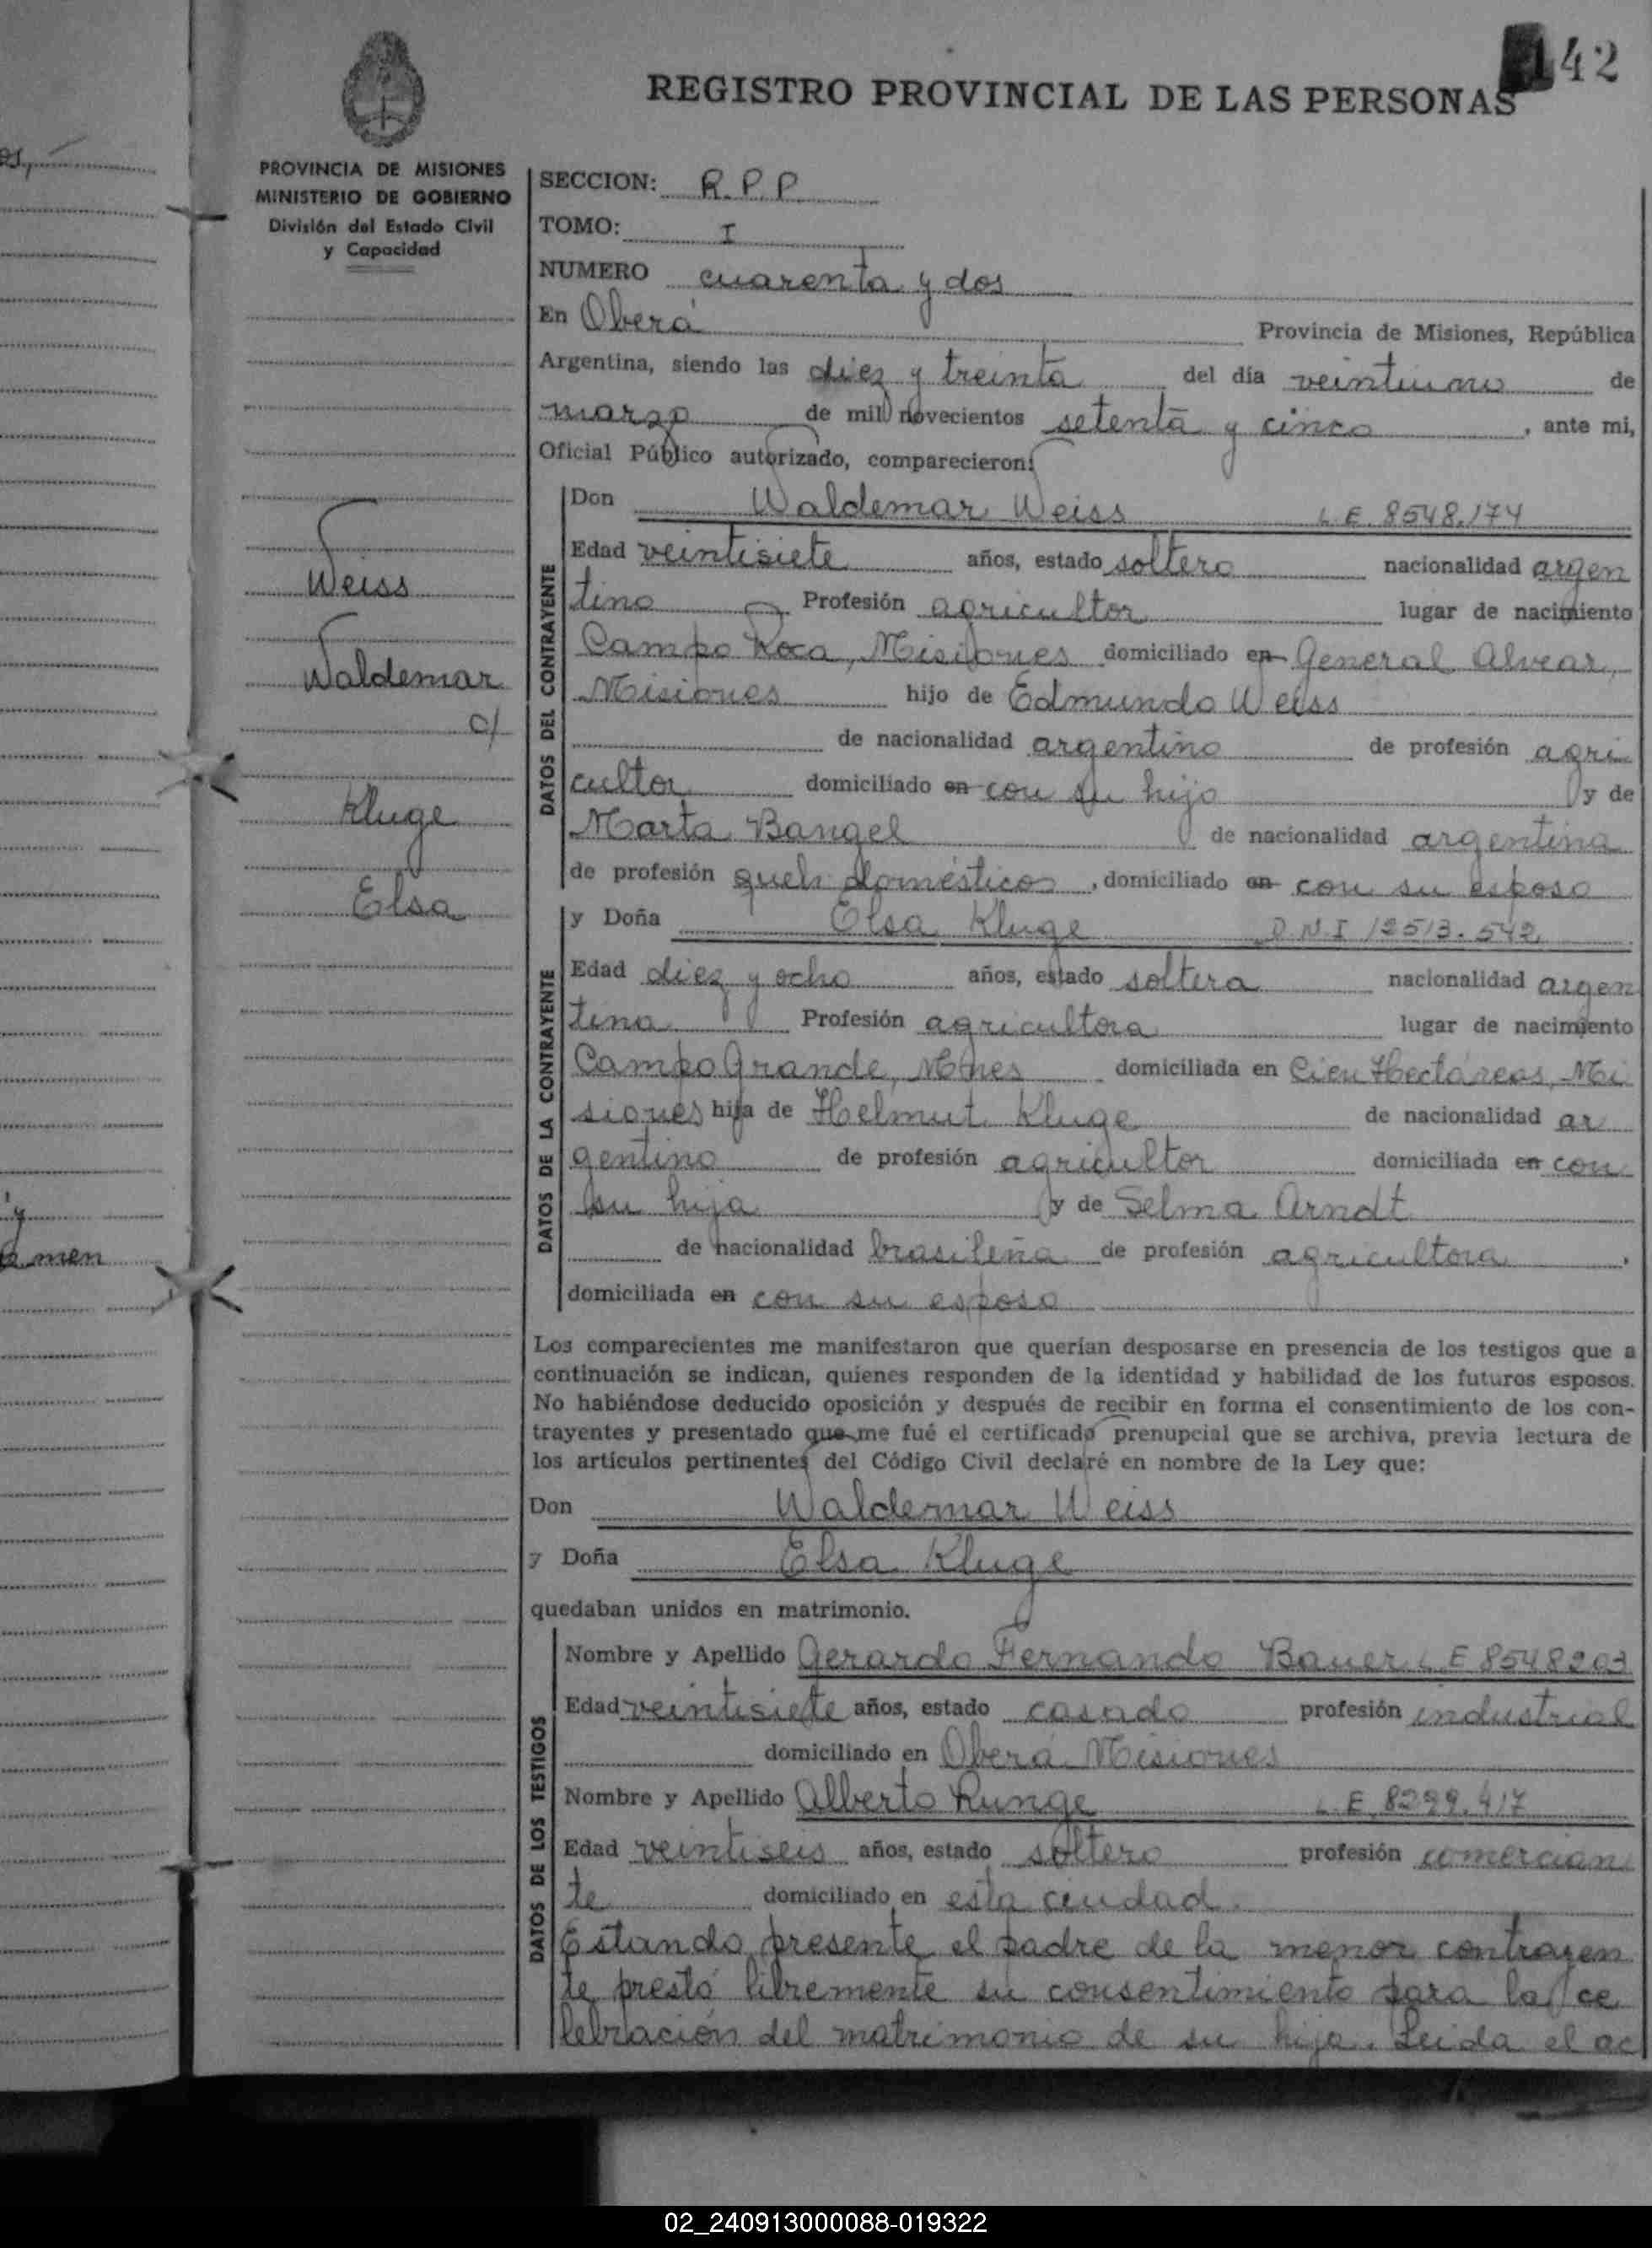 142
REGISTRO PROVINCIAL DE LAS PERSONAS
PROVINCIA DE MISIONES
MINISTERIO DE GOBIERNO
División del Estado Civil
y Capacidad
SECCION: R.P.P
TOMO: I
NUMERO cuarenta y dos
En Oberá Provincia de Misiones, República
Argentina, siendo las diez y treinta del día veintiuno de
marzo de mil novecientos setenta y cinco, ante mi,
Oficial Público autorizado, comparecieron:
Weiss
Waldemar
c/
Kluge
Elsa
DATOS DEL CONTRAYENTE
Don Waldemar Weiss L.E. 8548.174
Edad veintisiete años, estado soltero nacionalidad argen
tino Profesión agricultor lugar de nacimiento
Campo Roca, Misiones domiciliado en General Alvear,
Misiones hijo de Edmundo Weiss
de nacionalidad argentino de profesión agri
cultor domiciliado en con su hijo y de
Marta Bangel de nacionalidad argentina
de profesión queh. domésticos, domiciliado en con su esposo
DATOS DE LA CONTRAYENTE
y Doña Elsa Kluge D.N.I 12513.542
Edad diez y ocho años, estado soltera nacionalidad argen
tina Profesión agricultora lugar de nacimiento
Campo Grande, Mnes domiciliada en Cien Hectáreas, Mi
siones hija de Helmut Kluge de nacionalidad ar
gentino de profesión agricultor domiciliada en con
su hija y de Selma Arndt
de nacionalidad brasileña de profesión agricultora.
domiciliada en con su esposo
Los comparecientes me manifestaron que querían desposarse en presencia de los testigos que a
continuación se indican, quienes responden de la identidad y habilidad de los futuros esposos.
No habiéndose deducido oposición y después de recibir en forma el consentimiento de los con-
trayentes y presentado que me fué el certificado prenupcial que se archiva, previa lectura de
los artículos pertinentes del Código Civil declaré en nombre de la Ley que:
Don Waldemar Weiss
y Doña Elsa Kluge
quedaban unidos en matrimonio.
DATOS DE LOS TESTIGOS
Nombre y Apellido Gerardo Fernando Bauer L.E 8548203
Edad veintisiete años, estado casado profesión industrial
domiciliado en Oberá Misiones
Nombre y Apellido Alberto Runge L.E. 8299.417
Edad veintiseis años, estado soltero profesión comercian
te domiciliado en esta ciudad.
Estando presente el padre de la menor contrayen
te prestó libremente su consentimiento para la ce
lebración del matrimonio de su hija. Leida el ac
y
men
02_240913000088-019322